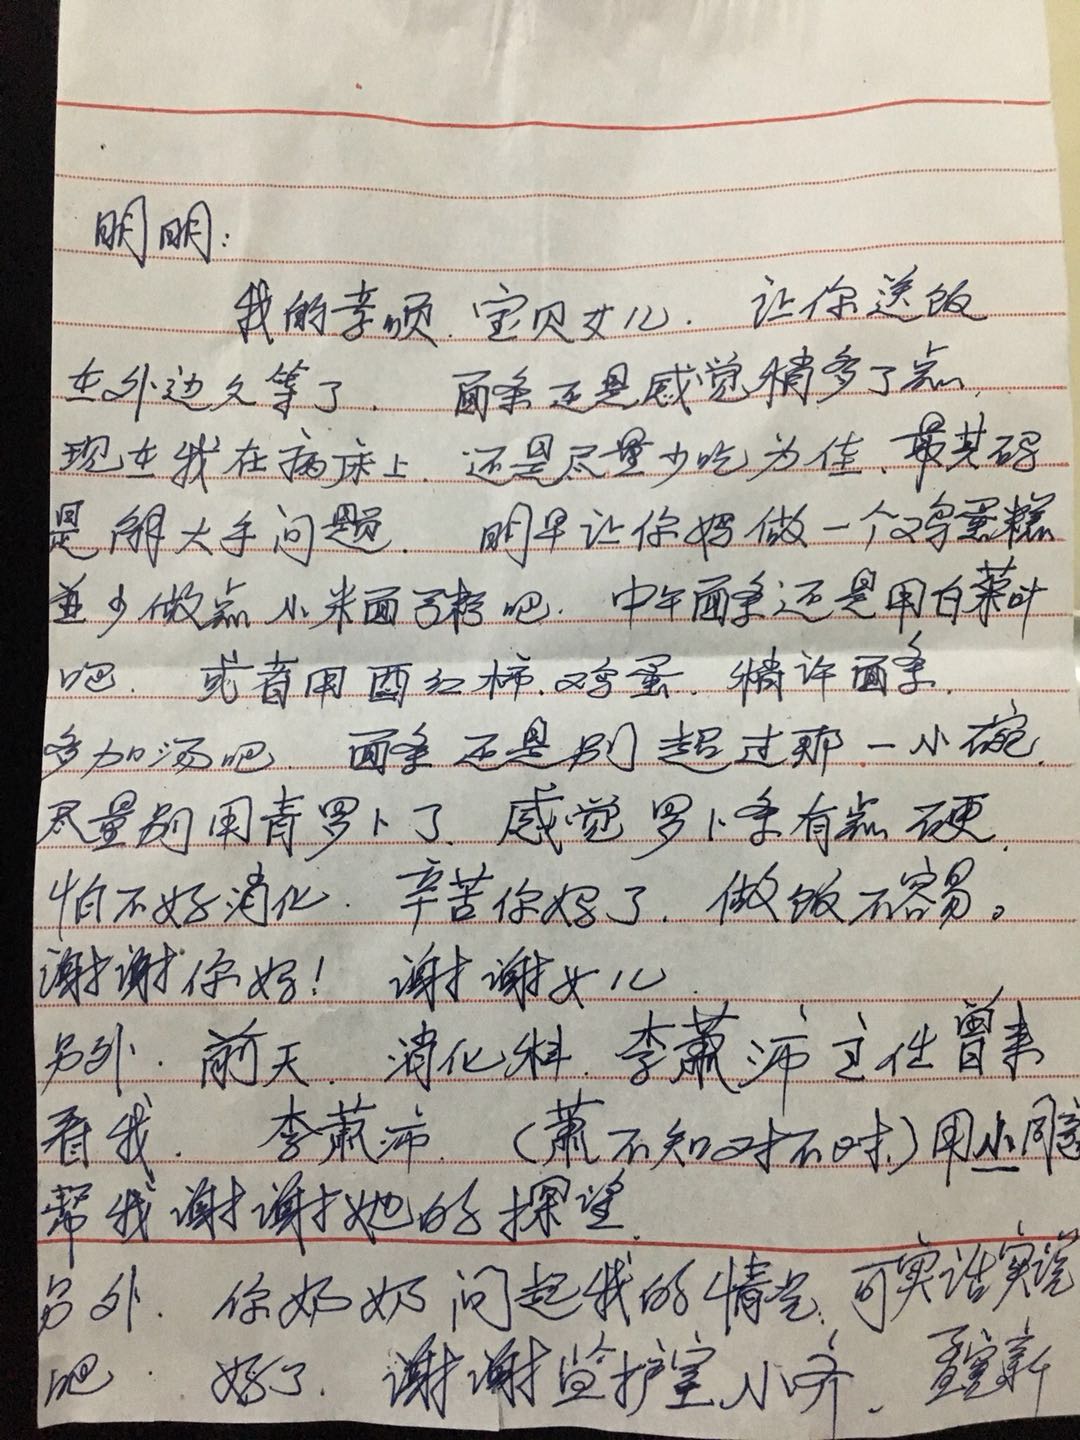 明明:
我的孝顺.宝贝女儿. 让你送饭
在外边久等了. 面条还是感觉稍多了点,
现在我在病床上. 还是尽量少吃为佳、最其码
是解大手问题. 明早让你妈做一个鸡蛋糕
并少做点小米面 吧. 中午面条还是用白菜叶
吧. 或者用西红柿.鸡蛋. 稍许面条.
多加汤吧. 面条还是别超过那一小碗.
尽量别用青罗卜了. 感觉罗卜条有点硬.
怕不好消化. 辛苦你妈了. 做饭不容易。
谢谢你妈! 谢谢女儿.
另外. 前天. 消化科.李萧沛主任曾来
看我. 李萧沛. (萧不知对不对.)用
帮我谢谢她的探望.
另外. 你奶奶问起我的情况.可实话实说
吧. 好了. 谢谢监护室小齐、